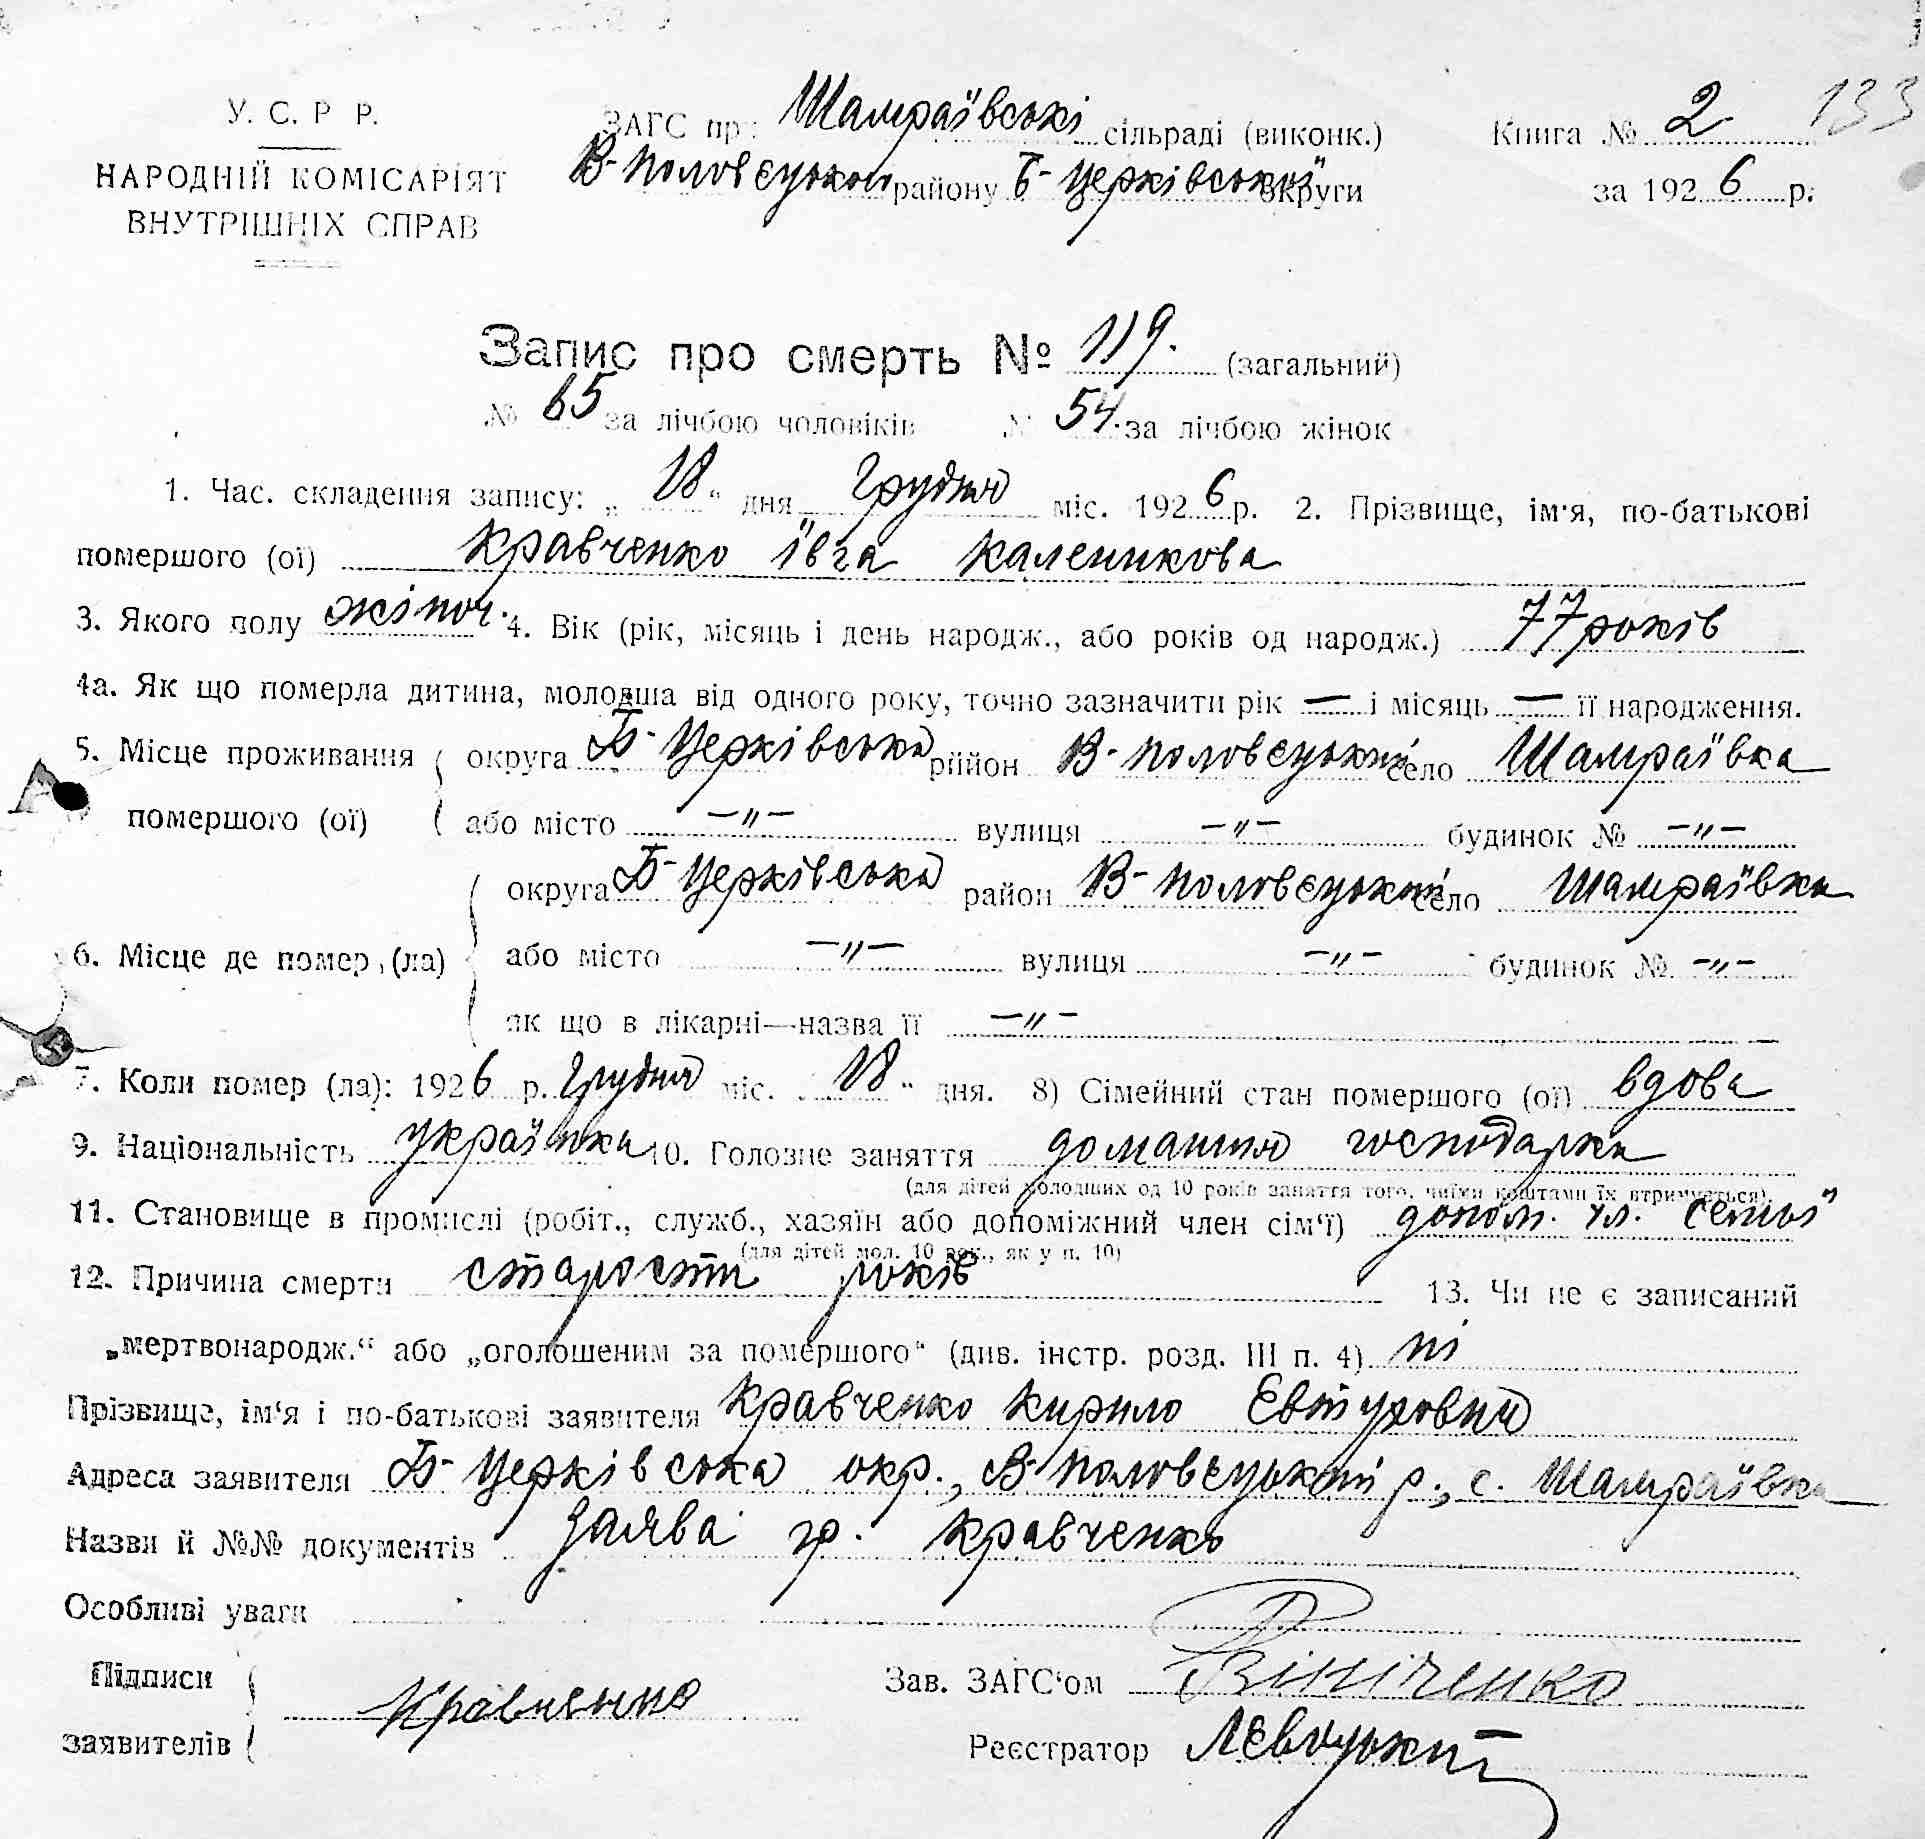 У. С. Р Р.
НАРОДНІЙ КОМІСАРІЯТ
ВНУТРІШНІХ СПРАВ
ЗАГС пр: Шамраївські сільраді (виконк.)
В-Половецького району Б-Церківської округи
Книга № 2 133
за 1926 р.
Запис про смерть № 119. (загальний)
№ 65 за лічбою чоловіків № 54. за лічбою жінок
1. Час. складення запису: „18“ дня Грудня міс. 1926 р. 2. Прізвище, ім'я, по-батькові
помершого (ої) Кравченко Ївга Каленикова
3. Якого полу жіноч. 4. Вік (рік, місяць і день народж., або років од народж.) 77 років
4а. Як що померла дитина, молодша від одного року, точно зазначити рік — і місяць — її народження.
5. Місце проживання помершого (ої)
округа Б-Церківська район В-Половецький село Шамраївка
або місто –„– вулиця –„– будинок № –„–
6. Місце де помер, (ла)
округа Б-Церківська район В-Половецький село Шамраївка
або місто –„– вулиця –„– будинок № –„–
як що в лікарні—назва її –„–
7. Коли помер (ла): 1926 р. Грудня міс. „18“ дня. 8) Сімейний стан помершого (ої) вдова
9. Національність українка 10. Головне заняття домашня господарка
(для дітей молодших од 10 років заняття того, чиїми коштами їх втримується).
11. Становище в промислі (робіт., служб., хазяїн або допоміжний член сім'ї) допом. чл. семьї
(для дітей мол. 10 рок., як у п. 10)
12. Причина смерти старости років 13. Чи не є записаний
„мертвонародж.“ або „оголошеним за помершого“ (див. інстр. розд. III п. 4) ні
Прізвище, ім'я і по-батькові заявителя Кравченко Кирило Євтухович
Адреса заявителя Б-Церківська окр., В-Половецький р., с. Шамраївка
Назви й №№ документів Заява гр. Кравченко
Особливі уваги
Підписи заявителів Кравченко
Зав. ЗАГС'ом Вініченко
Реєстратор Лєвицький